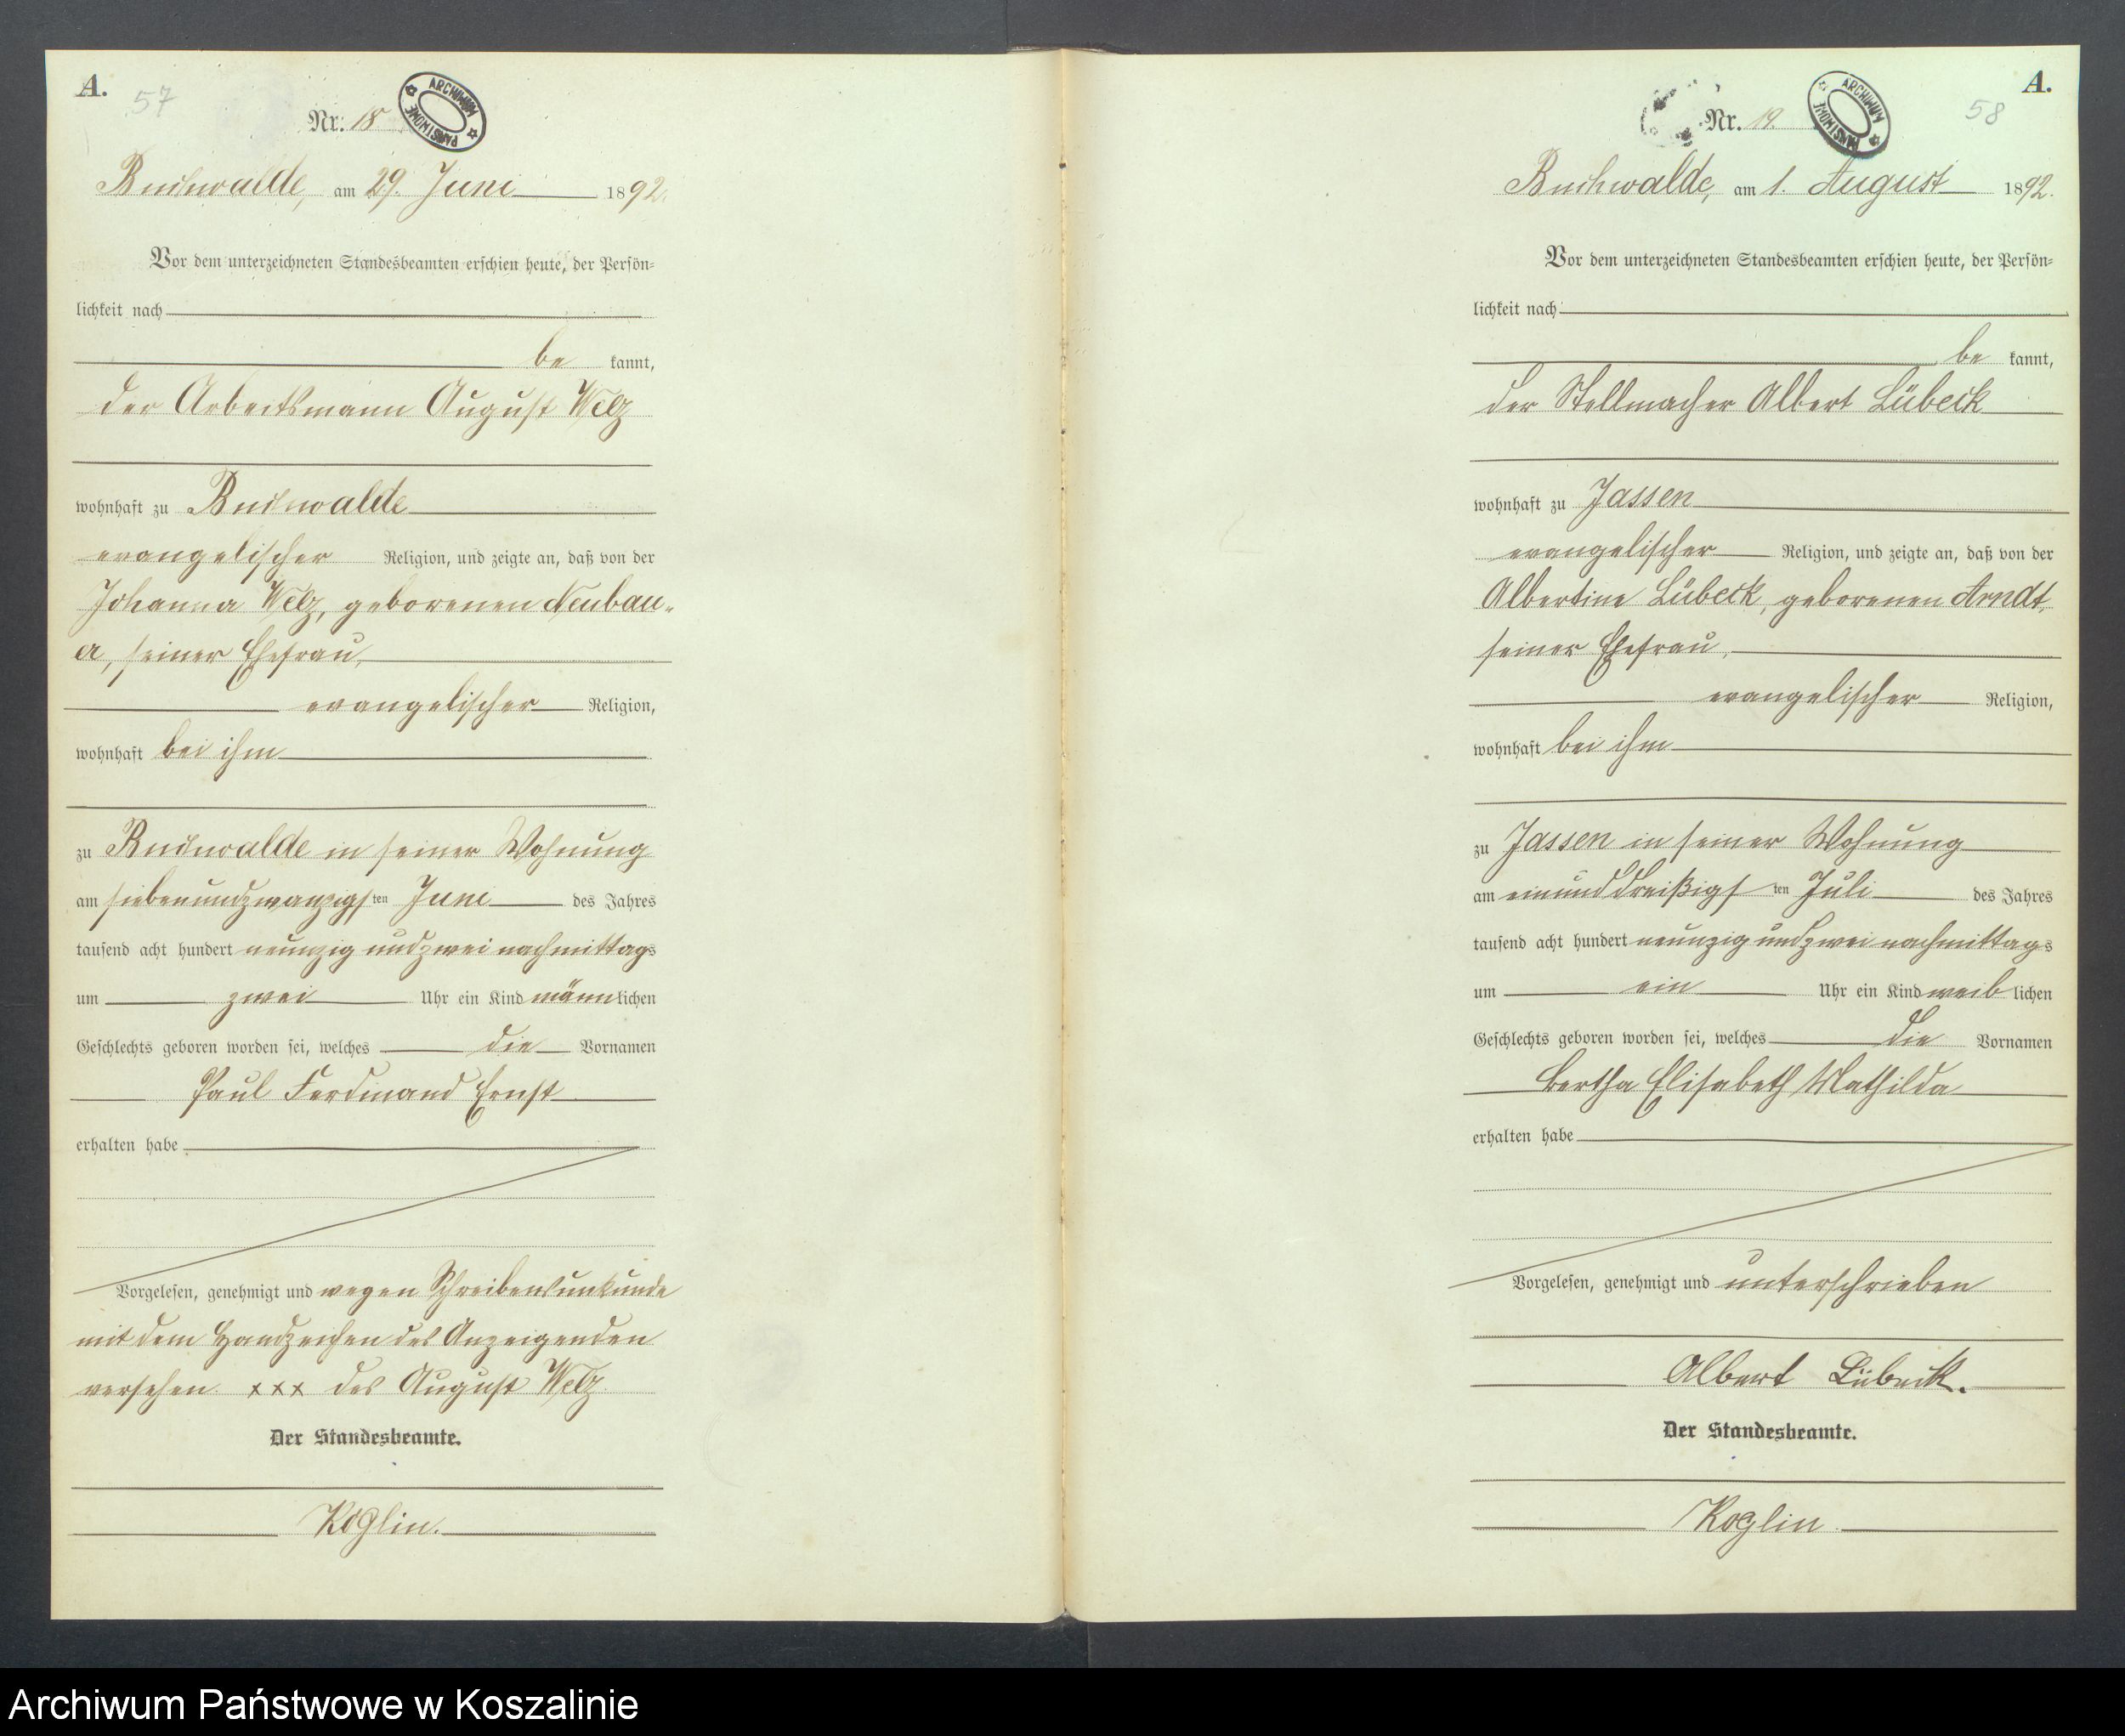 A.
57
Nr. 18
ARCHIWUM PAŃSTWOWE
Buchwalde, am 29. Juni 1892.
Vor dem unterzeichneten Standesbeamten erschien heute, der Persön=
lichkeit nach
be kannt,
der Arbeitsmann August Welz
wohnhaft zu Buchwalde
evangelischer Religion, und zeigte an, daß von der
Johanna Welz, geborenen Neubau=
er, seiner Ehefrau,
evangelischer Religion,
wohnhaft bei ihm
zu Buchwalde in seiner Wohnung
am siebenundzwanzigsten Juni des Jahres
tausend acht hundert neunzig und zwei nachmittags
um zwei Uhr ein Kind männlichen
Geschlechts geboren worden sei, welches die Vornamen
Paul Ferdinand Ernst
erhalten habe
Vorgelesen, genehmigt und wegen Schreibensunkunde
mit dem Handzeichen des Anzeigenden
versehen. xxx des August Welz.
Der Standesbeamte.
Koglin.
A.
58
Nr. 19.
ARCHIWUM PAŃSTWOWE
Buchwalde, am 1. August 1892.
Vor dem unterzeichneten Standesbeamten erschien heute, der Persön=
lichkeit nach
be kannt,
der Stellmacher Albert Lübeck
wohnhaft zu Jassen
evangelischer Religion, und zeigte an, daß von der
Albertine Lübeck, geborenen Arndt,
seiner Ehefrau,
evangelischer Religion,
wohnhaft bei ihm
zu Jassen in seiner Wohnung
am einunddreißigsten Juli des Jahres
tausend acht hundert neunzig und zwei nachmittags
um ein Uhr ein Kind weiblichen
Geschlechts geboren worden sei, welches die Vornamen
Bertha Elisabeth Mathilda
erhalten habe
Vorgelesen, genehmigt und unterschrieben
Albert Lübeck.
Der Standesbeamte.
Koglin.
Archiwum Państwowe w Koszalinie